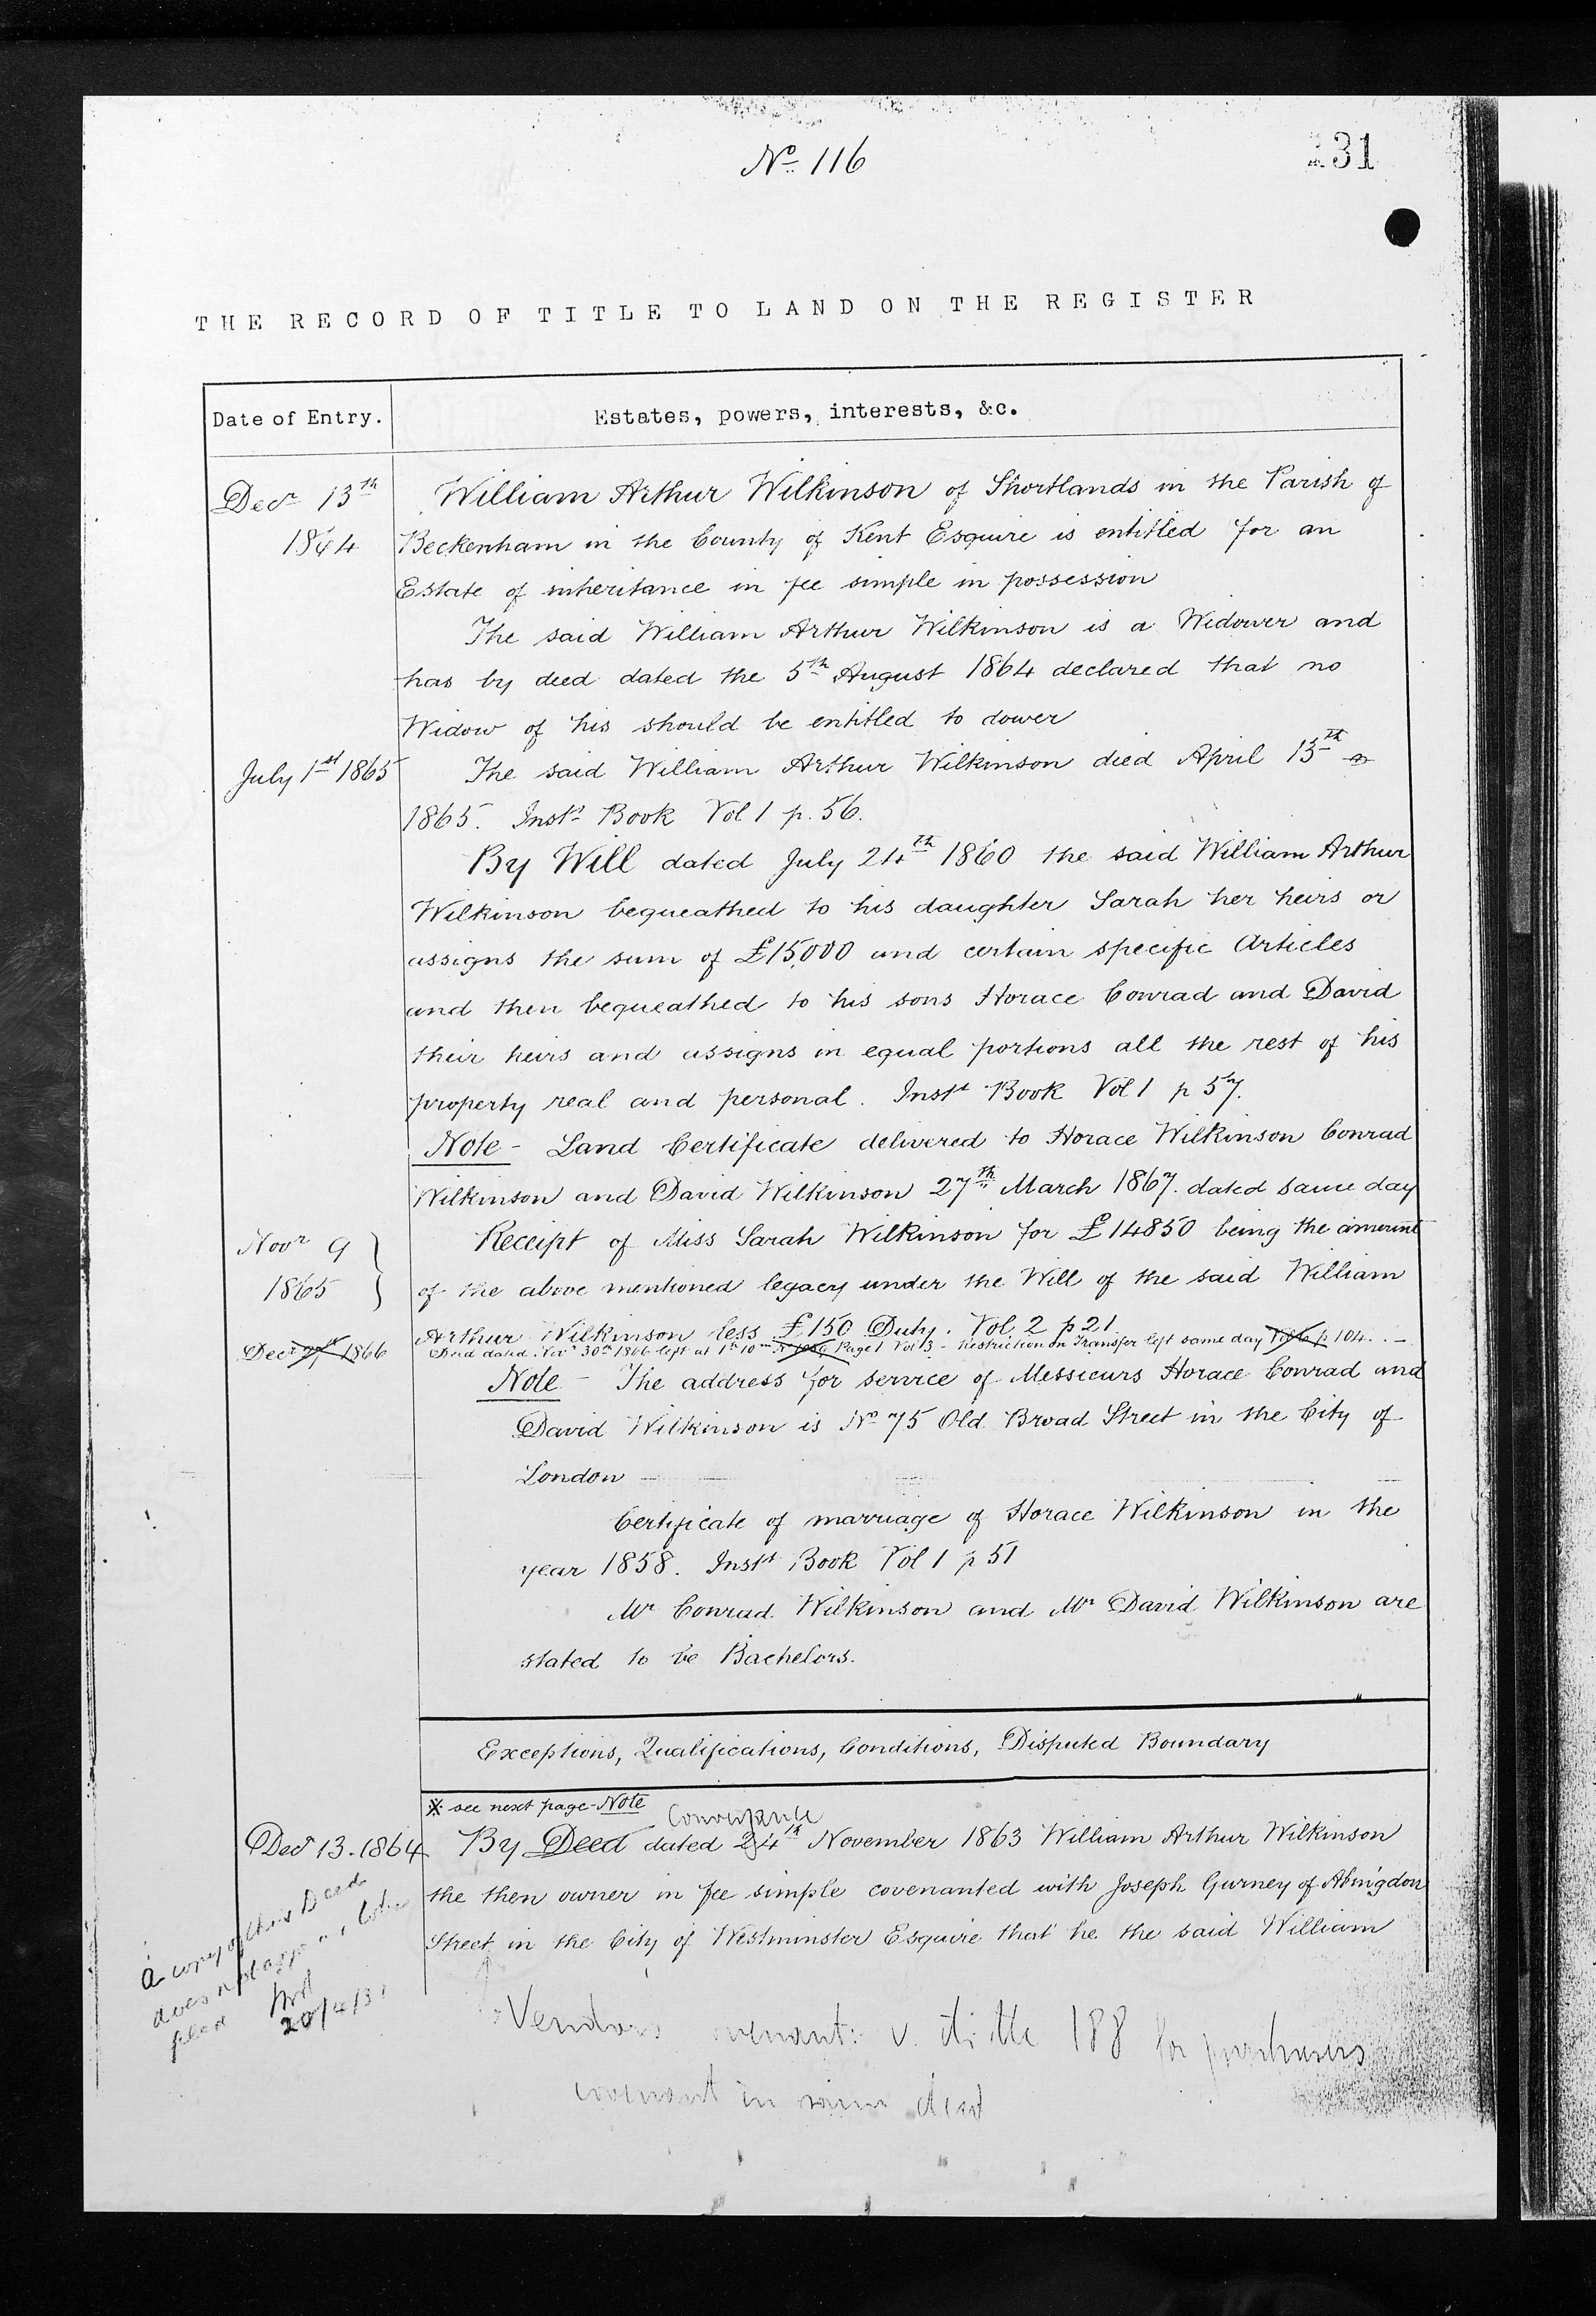 No 116
131
THE RECORD OF TITLE TO LAND ON THE REGISTER
Date of Entry.
Estates, powers, interests, &c.
Decr 13th
1864
William Arthur Wilkinson of Shortlands in the Parish of
Beckenham in the County of Kent Esquire is entitled for an
Estate of inheritance in fee simple in possession
The said William Arthur Wilkinson is a Widower and
has by deed dated the 5th August 1864 declared that no
Widow of his should be entitled to dower
July 1st 1865
The said William Arthur Wilkinson died April 13th
1865. Instt Book Vol 1 p. 56.
By Will dated July 24th 1860 the said William Arthur
Wilkinson bequeathed to his daughter Sarah her heirs or
assigns the sum of £15,000 and certain specific Articles
and then bequeathed to his sons Horace Conrad and David
their heirs and assigns in equal portions all the rest of his
property real and personal. Instt Book Vol 1 p 57.
Note - Land Certificate delivered to Horace Wilkinson Conrad
Wilkinson and David Wilkinson 27th March 1867. dated same day
Novr 9
1865
Receipt of Miss Sarah Wilkinson for £14850 being the amount
of the above mentioned legacy under the Will of the said William
Arthur Wilkinson less £150 Duty. Vol 2 p 21
Decr 1866
Deed dated Novr 30th 1866 left at 1h 10m Page 1 Vol 3 - Restriction on Transfer left same day p 104
Note - The address for service of Messieurs Horace Conrad and
David Wilkinson is No 75 Old Broad Street in the City of
London
Certificate of marriage of Horace Wilkinson in the
year 1858. Instt Book Vol 1 p 51
Mr Conrad Wilkinson and Mr David Wilkinson are
stated to be Bachelors.
Exceptions, Qualifications, Conditions, Disputed Boundary
※ see next page - Note
Conveyance
Decr 13. 1864
By Deed dated 24th November 1863 William Arthur Wilkinson
the then owner in fee simple covenanted with Joseph Gurney of Abingdon
Street in the City of Westminster Esquire that he the said William
a copy of this Deed
does not appr to be
filed
20/4/31
Vendors covenant: v. title 188 for purchasers
covenant in same deed